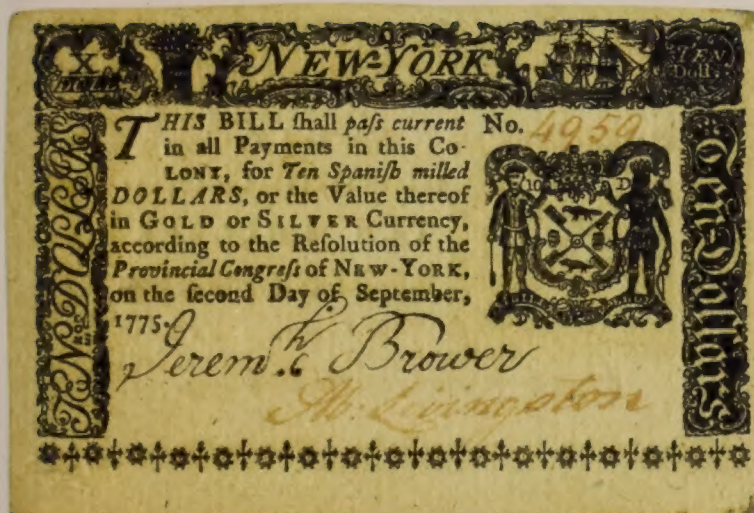 X
NEW-YORK
TEN
Doll
THIS BILL ſhall paſs current
in all Payments in this Co-
LONY, for Ten Spaniſh milled
DOLLARS, or the Value thereof
in GOLD or SILVER Currency,
according to the Reſolution of the
Provincial Congreſs of NEW-YORK,
on the ſecond Day of September,
1775.
No. 4959
10 D
TEN DOLLARS
Ten Dollars
Jeremh. Brower
Livingston